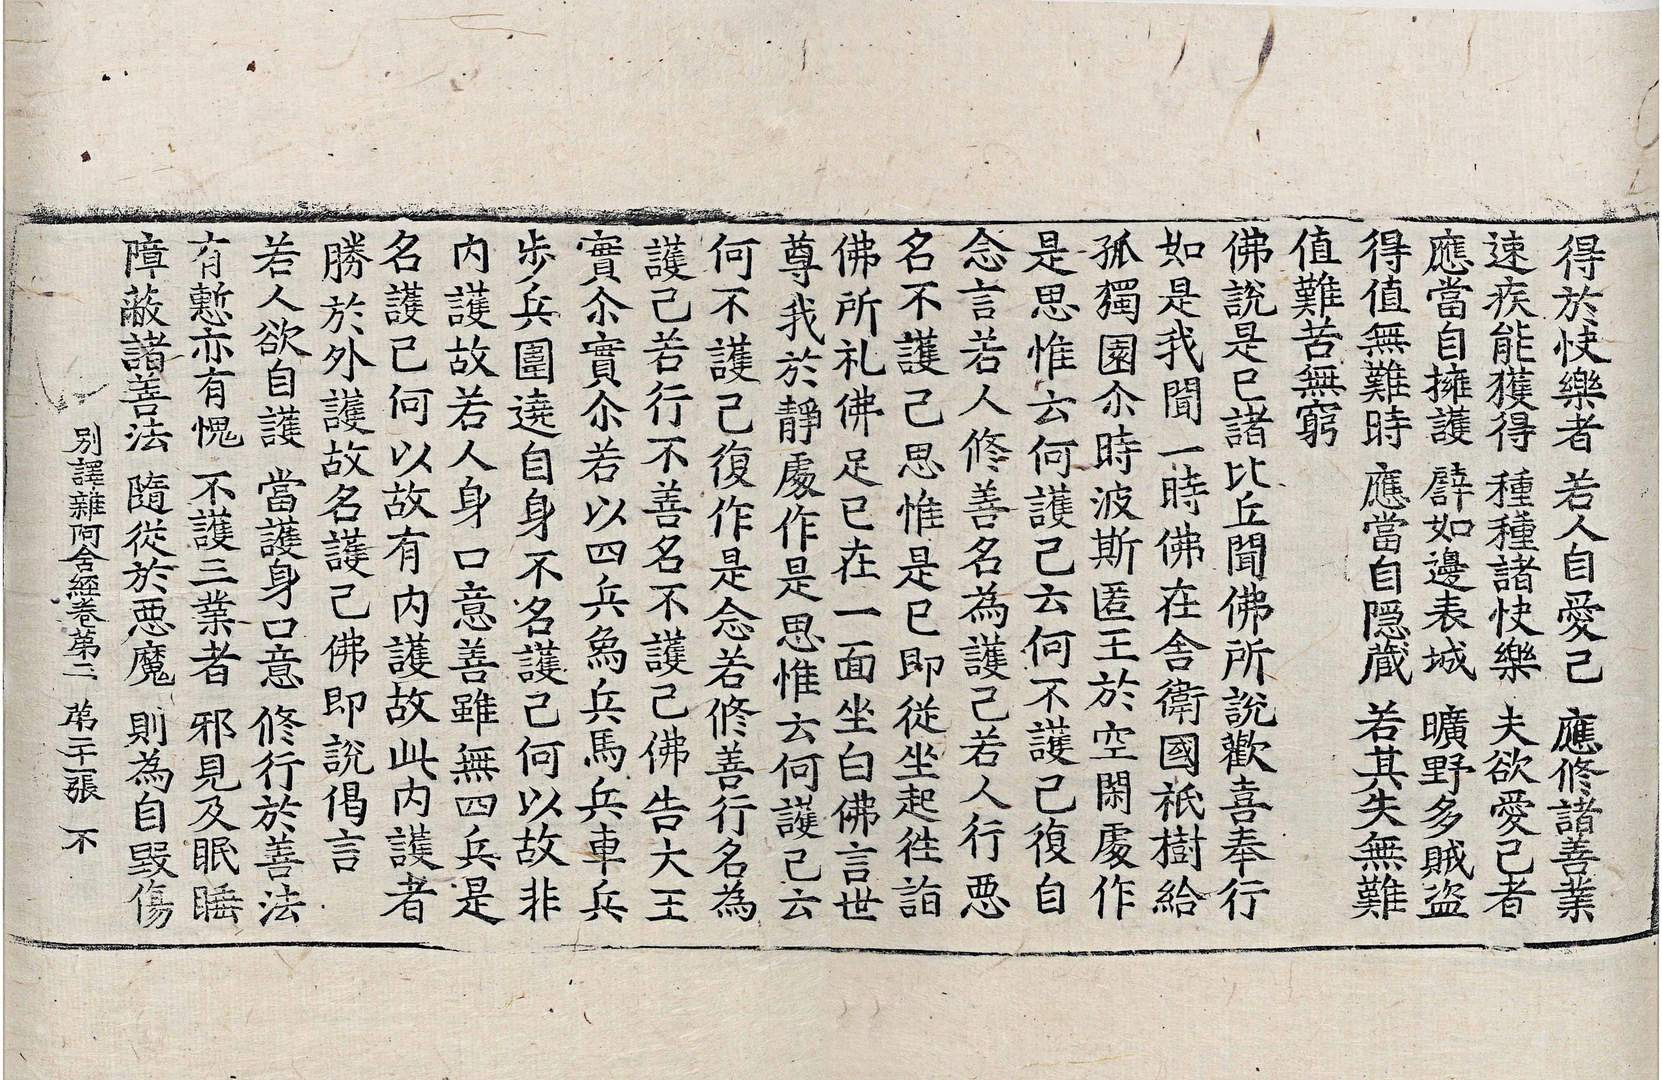 得於快樂者 若人自愛己 應修諸善業
速疾能獲得 種種諸快樂 夫欲愛己者
應當自擁護 譬如邊表城 曠野多賊盜
得值無難時 應當自隱蔵 若其失無難
值難苦無窮
佛說是已諸比丘聞佛所說歡喜奉行
如是我聞一時佛在舍衛國祇樹給
孤獨園尒時波斯匿王於空閑處作
是思惟云何護己云何不護己復自
念言若人修善名為護己若人行惡
名不護己思惟是已即從坐起徃詣
佛所礼佛足已在一面坐白佛言世
尊我於靜處作是思惟云何護己云
何不護己復作是念若修善行名為
護己若行不善名不護己佛告大王
實尒實尒若以四兵象兵馬兵車兵
步兵圍遶自身不名護己何以故非
內護故若人身口意善雖無四兵是
名護己何以故有內護故此內護者
勝於外護故名護己佛即說偈言
若人欲自護 當護身口意 修行於善法
有慙亦有愧 不護三業者 邪見及眠睡
障蔽諸善法 隨從於惡魔 則為自毀傷
別譯雜阿含經卷第三 第二十張 不